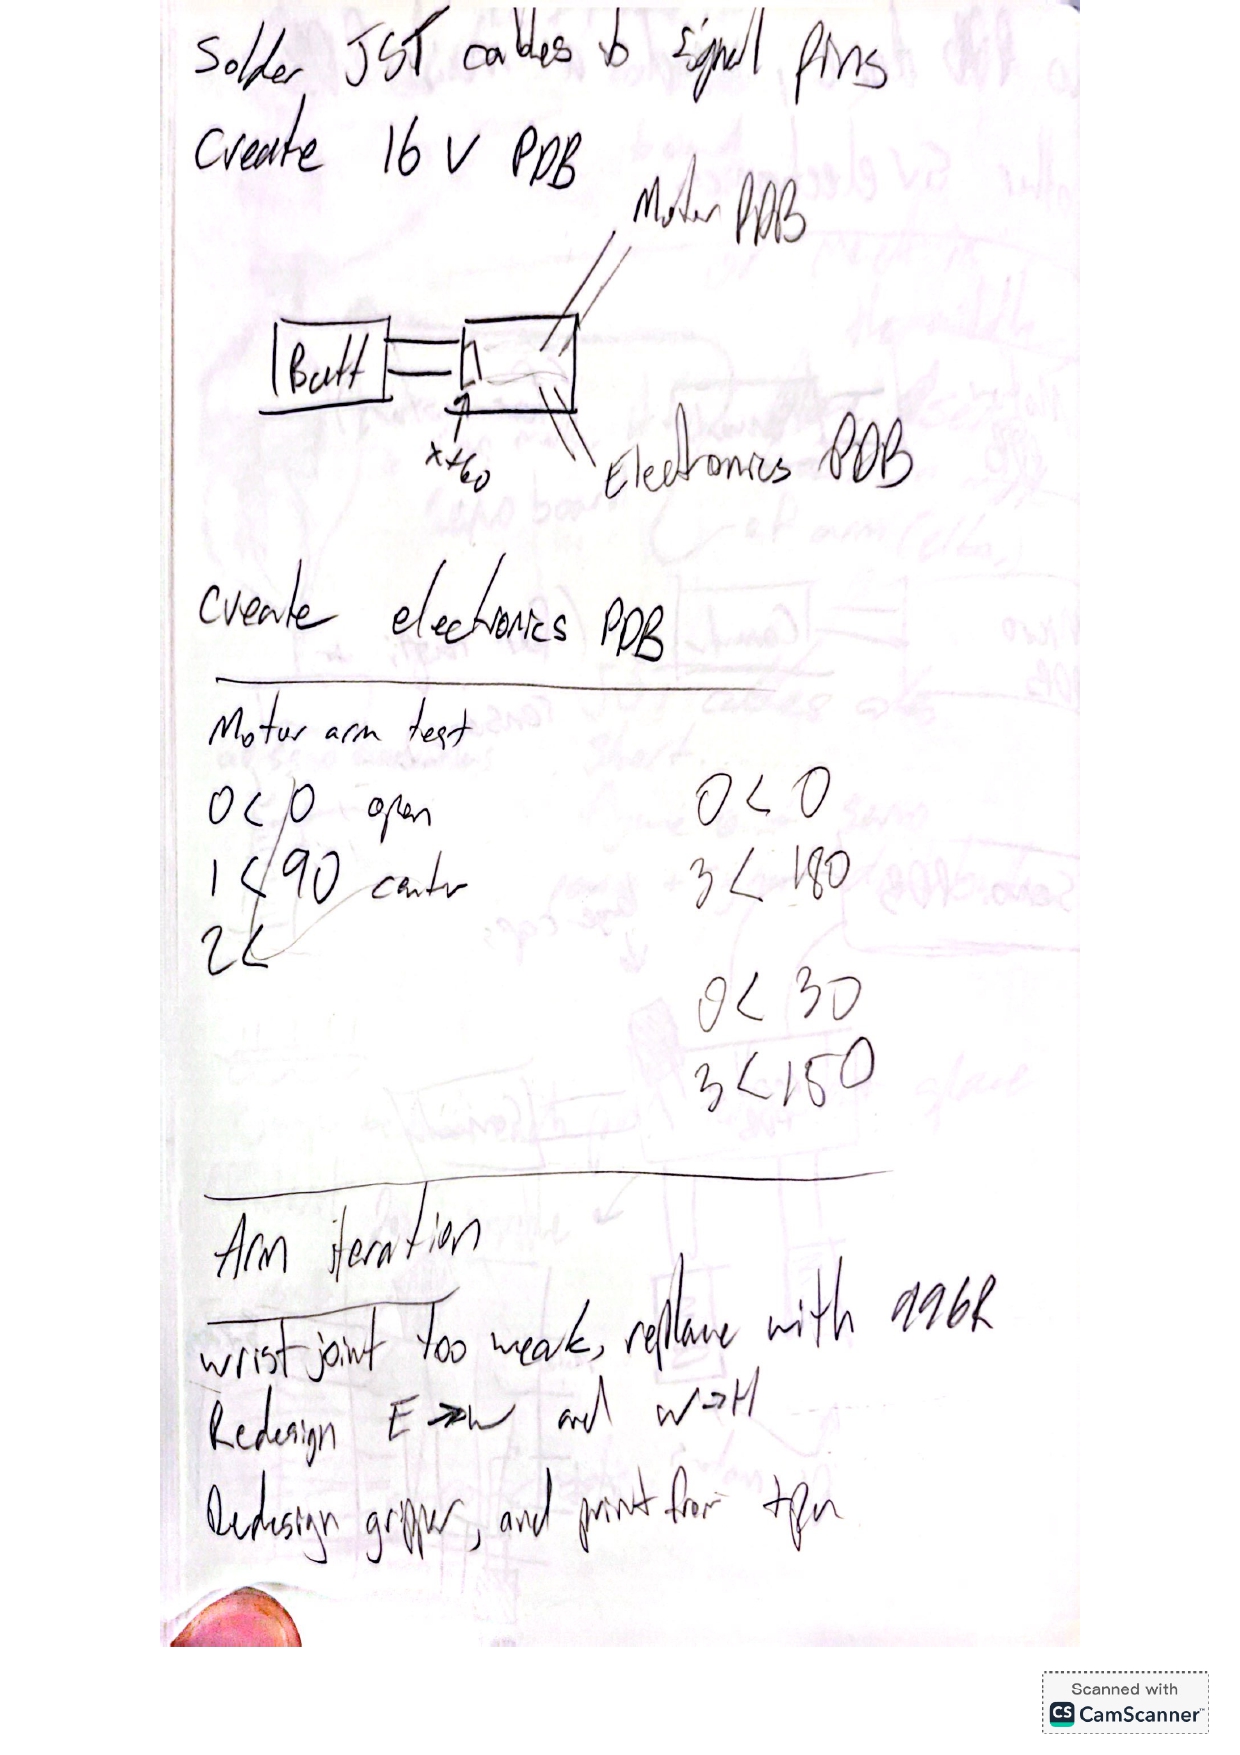 Solder JST cables to signal pins
Create 16 V PDB
Motor PDB
Batt
xt60
Electronics PDB
Create electronics PDB
Motor arm test
0< 0 open
1<90 center
2<
0< 0
3< 180
0< 30
3<150
Arm iteration
wrist joint too weak, replace with 996R
Redesign E→W and W→H
Redesign gripper, and print from tpu
Scanned with
CS CamScanner